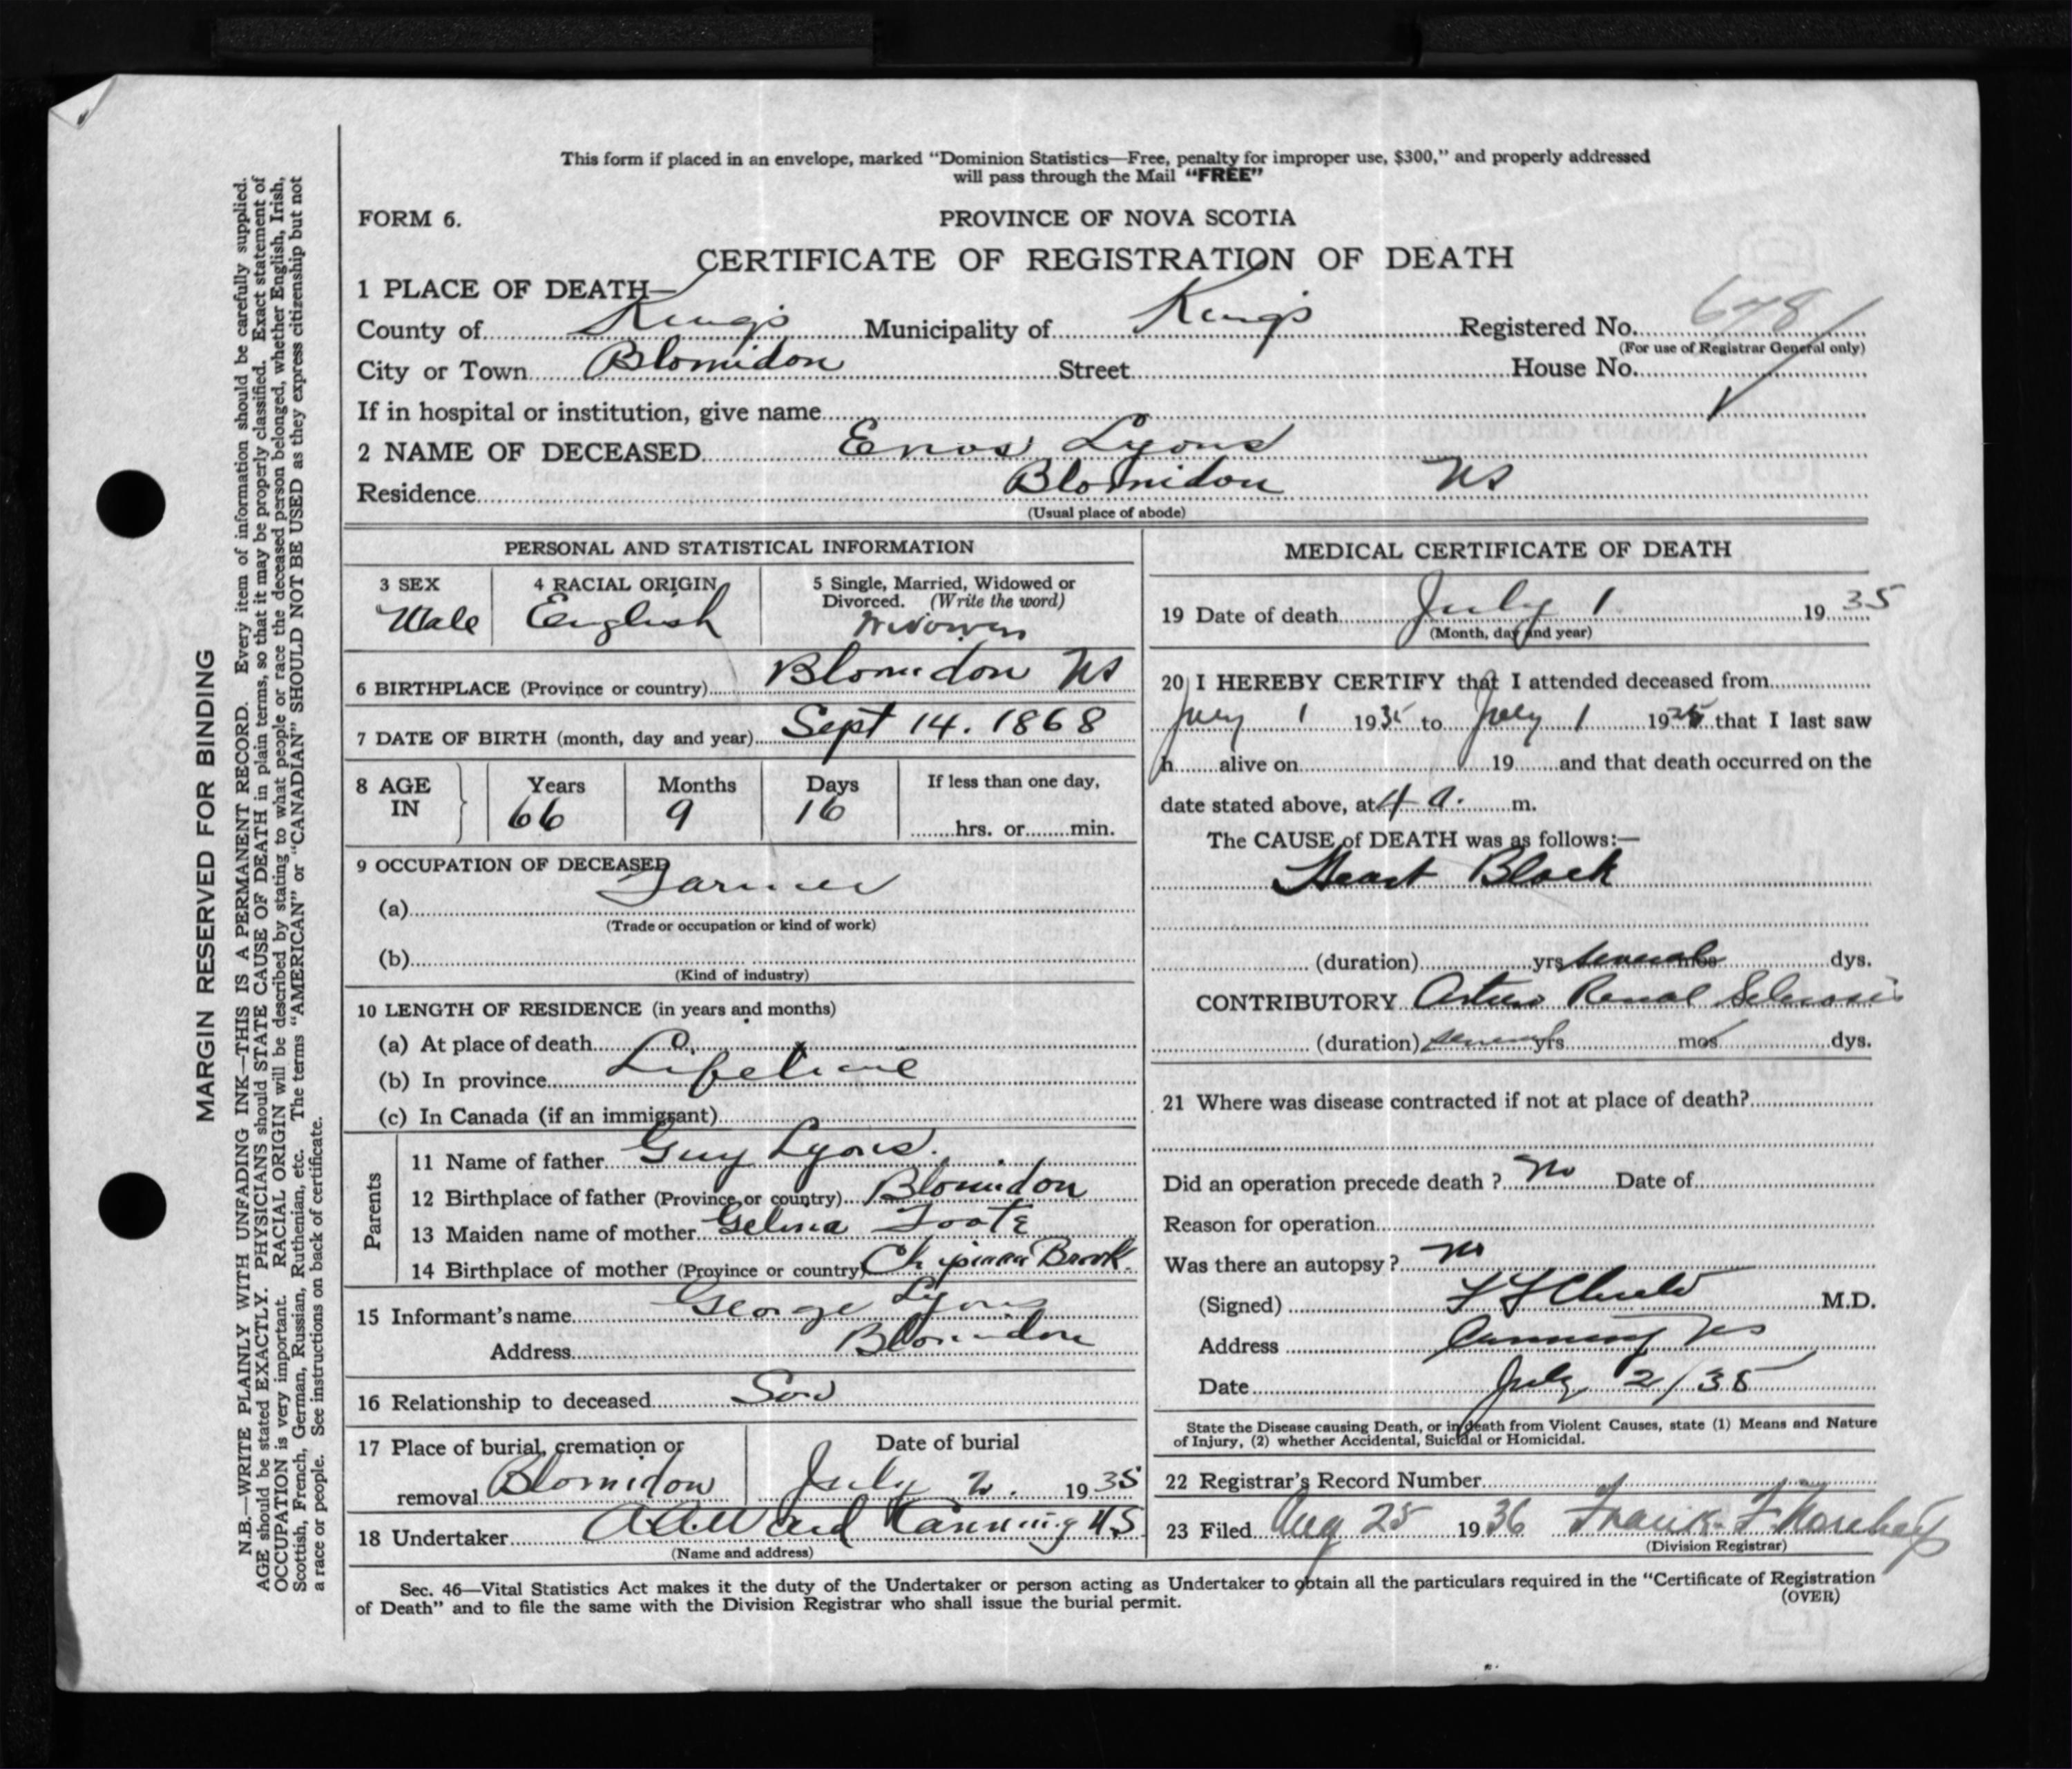 This form if placed in an envelope, marked "Dominion Statistics—Free, penalty for improper use, $300," and properly addressed
will pass through the Mail "FREE"
FORM 6.
PROVINCE OF NOVA SCOTIA
CERTIFICATE OF REGISTRATION OF DEATH
1 PLACE OF DEATH—
County of Kings Municipality of Kings Registered No. 678
(For use of Registrar General only)
City or Town Blomidon Street House No.
If in hospital or institution, give name
2 NAME OF DECEASED Enos Lyons
Residence Blomidon NS
(Usual place of abode)
PERSONAL AND STATISTICAL INFORMATION
3 SEX Male
4 RACIAL ORIGIN English
5 Single, Married, Widowed or
Divorced. (Write the word)
Widower
6 BIRTHPLACE (Province or country) Blomidon NS
7 DATE OF BIRTH (month, day and year) Sept 14. 1868
8 AGE IN Years 66 Months 9 Days 16 If less than one day,
hrs. or min.
9 OCCUPATION OF DECEASED
(a) Farmer
(Trade or occupation or kind of work)
(b)
(Kind of industry)
10 LENGTH OF RESIDENCE (in years and months)
(a) At place of death
(b) In province Lifetime
(c) In Canada (if an immigrant)
Parents
11 Name of father Guy Lyons.
12 Birthplace of father (Province or country) Blomidon
13 Maiden name of mother Gelina Foote
14 Birthplace of mother (Province or country) Chipman Brook.
15 Informant's name George Lyons
Address Blomidon
16 Relationship to deceased Son
17 Place of burial, cremation or
removal Blomidon
Date of burial
July 2. 1935
18 Undertaker A.A. Ward Canning N.S
(Name and address)
MEDICAL CERTIFICATE OF DEATH
19 Date of death July 1 1935
(Month, day and year)
20 I HEREBY CERTIFY that I attended deceased from
July 1 1935 to July 1 1935 that I last saw
h alive on 19 and that death occurred on the
date stated above, at 4 a. m.
The CAUSE of DEATH was as follows:—
Heart Block
(duration) yrs several mos dys.
CONTRIBUTORY Arterio Renal Sclerosis
(duration) several yrs mos dys.
21 Where was disease contracted if not at place of death?
Did an operation precede death? No Date of
Reason for operation
Was there an autopsy? No
(Signed) M.D.
Address Canning NS
Date July 2/35
State the Disease causing Death, or in death from Violent Causes, state (1) Means and Nature
of Injury, (2) whether Accidental, Suicidal or Homicidal.
22 Registrar's Record Number
23 Filed Aug 25 1936 Frank F.
(Division Registrar)
Sec. 46—Vital Statistics Act makes it the duty of the Undertaker or person acting as Undertaker to obtain all the particulars required in the "Certificate of Registration
of Death" and to file the same with the Division Registrar who shall issue the burial permit.
(OVER)
MARGIN RESERVED FOR BINDING
N.B.—WRITE PLAINLY WITH UNFADING INK—THIS IS A PERMANENT RECORD. Every item of information should be carefully supplied.
AGE should be stated EXACTLY. PHYSICIANS should STATE CAUSE OF DEATH in plain terms, so that it may be properly classified. Exact statement of
OCCUPATION is very important. RACIAL ORIGIN will be described by stating to what people or race the deceased person belonged, whether English, Irish,
Scottish, French, German, Russian, Ruthenian, etc. The terms "AMERICAN" or "CANADIAN" SHOULD NOT BE USED as they express citizenship but not
a race or people. See instructions on back of certificate.